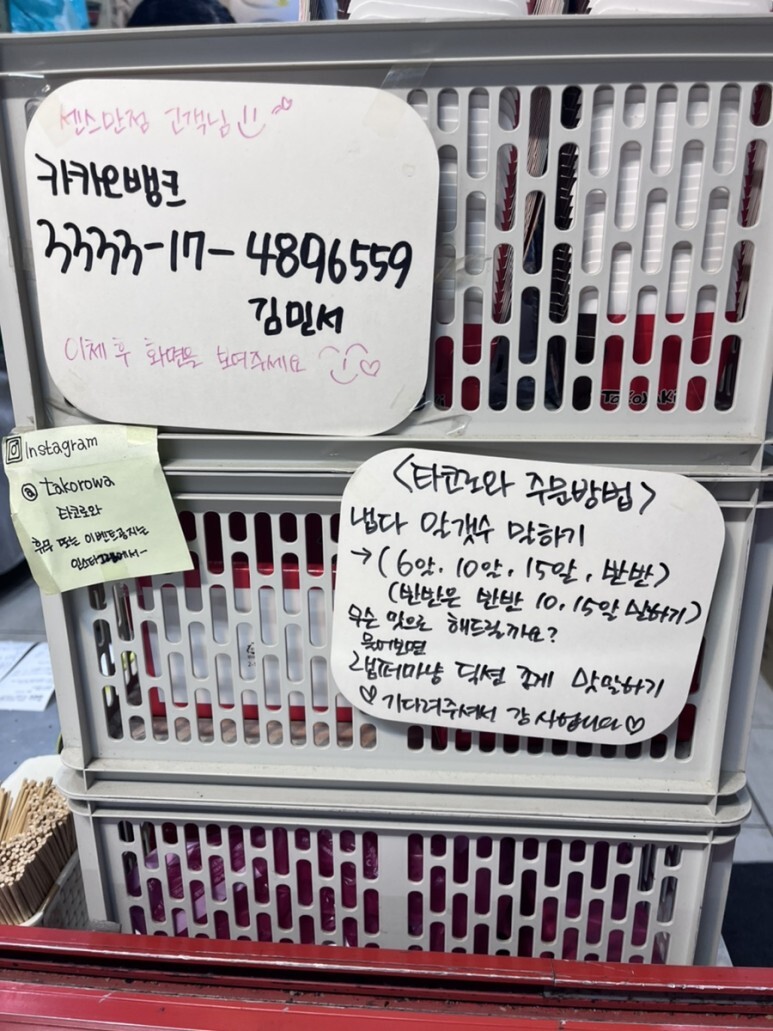 센스만점 고객님
카카오뱅크
3333-17-4896559
김민서
이체 후 화면을 보여주세요
Instagram
@ takorowa
타코로와
휴무 또는 이벤트공지는
인스타그램에서~
<타코로와 주문방법>
냅다 알갯수 말하기
→(6알, 10알, 15알, 반반)
(반반은 반반 10, 15알 말하기)
무슨 맛으로 해드릴까요?
물어보면
래퍼마냥 딕션 좋게 맛말하기
♡ 기다려주셔서 감사합니다 ♡
TAKOYAKI